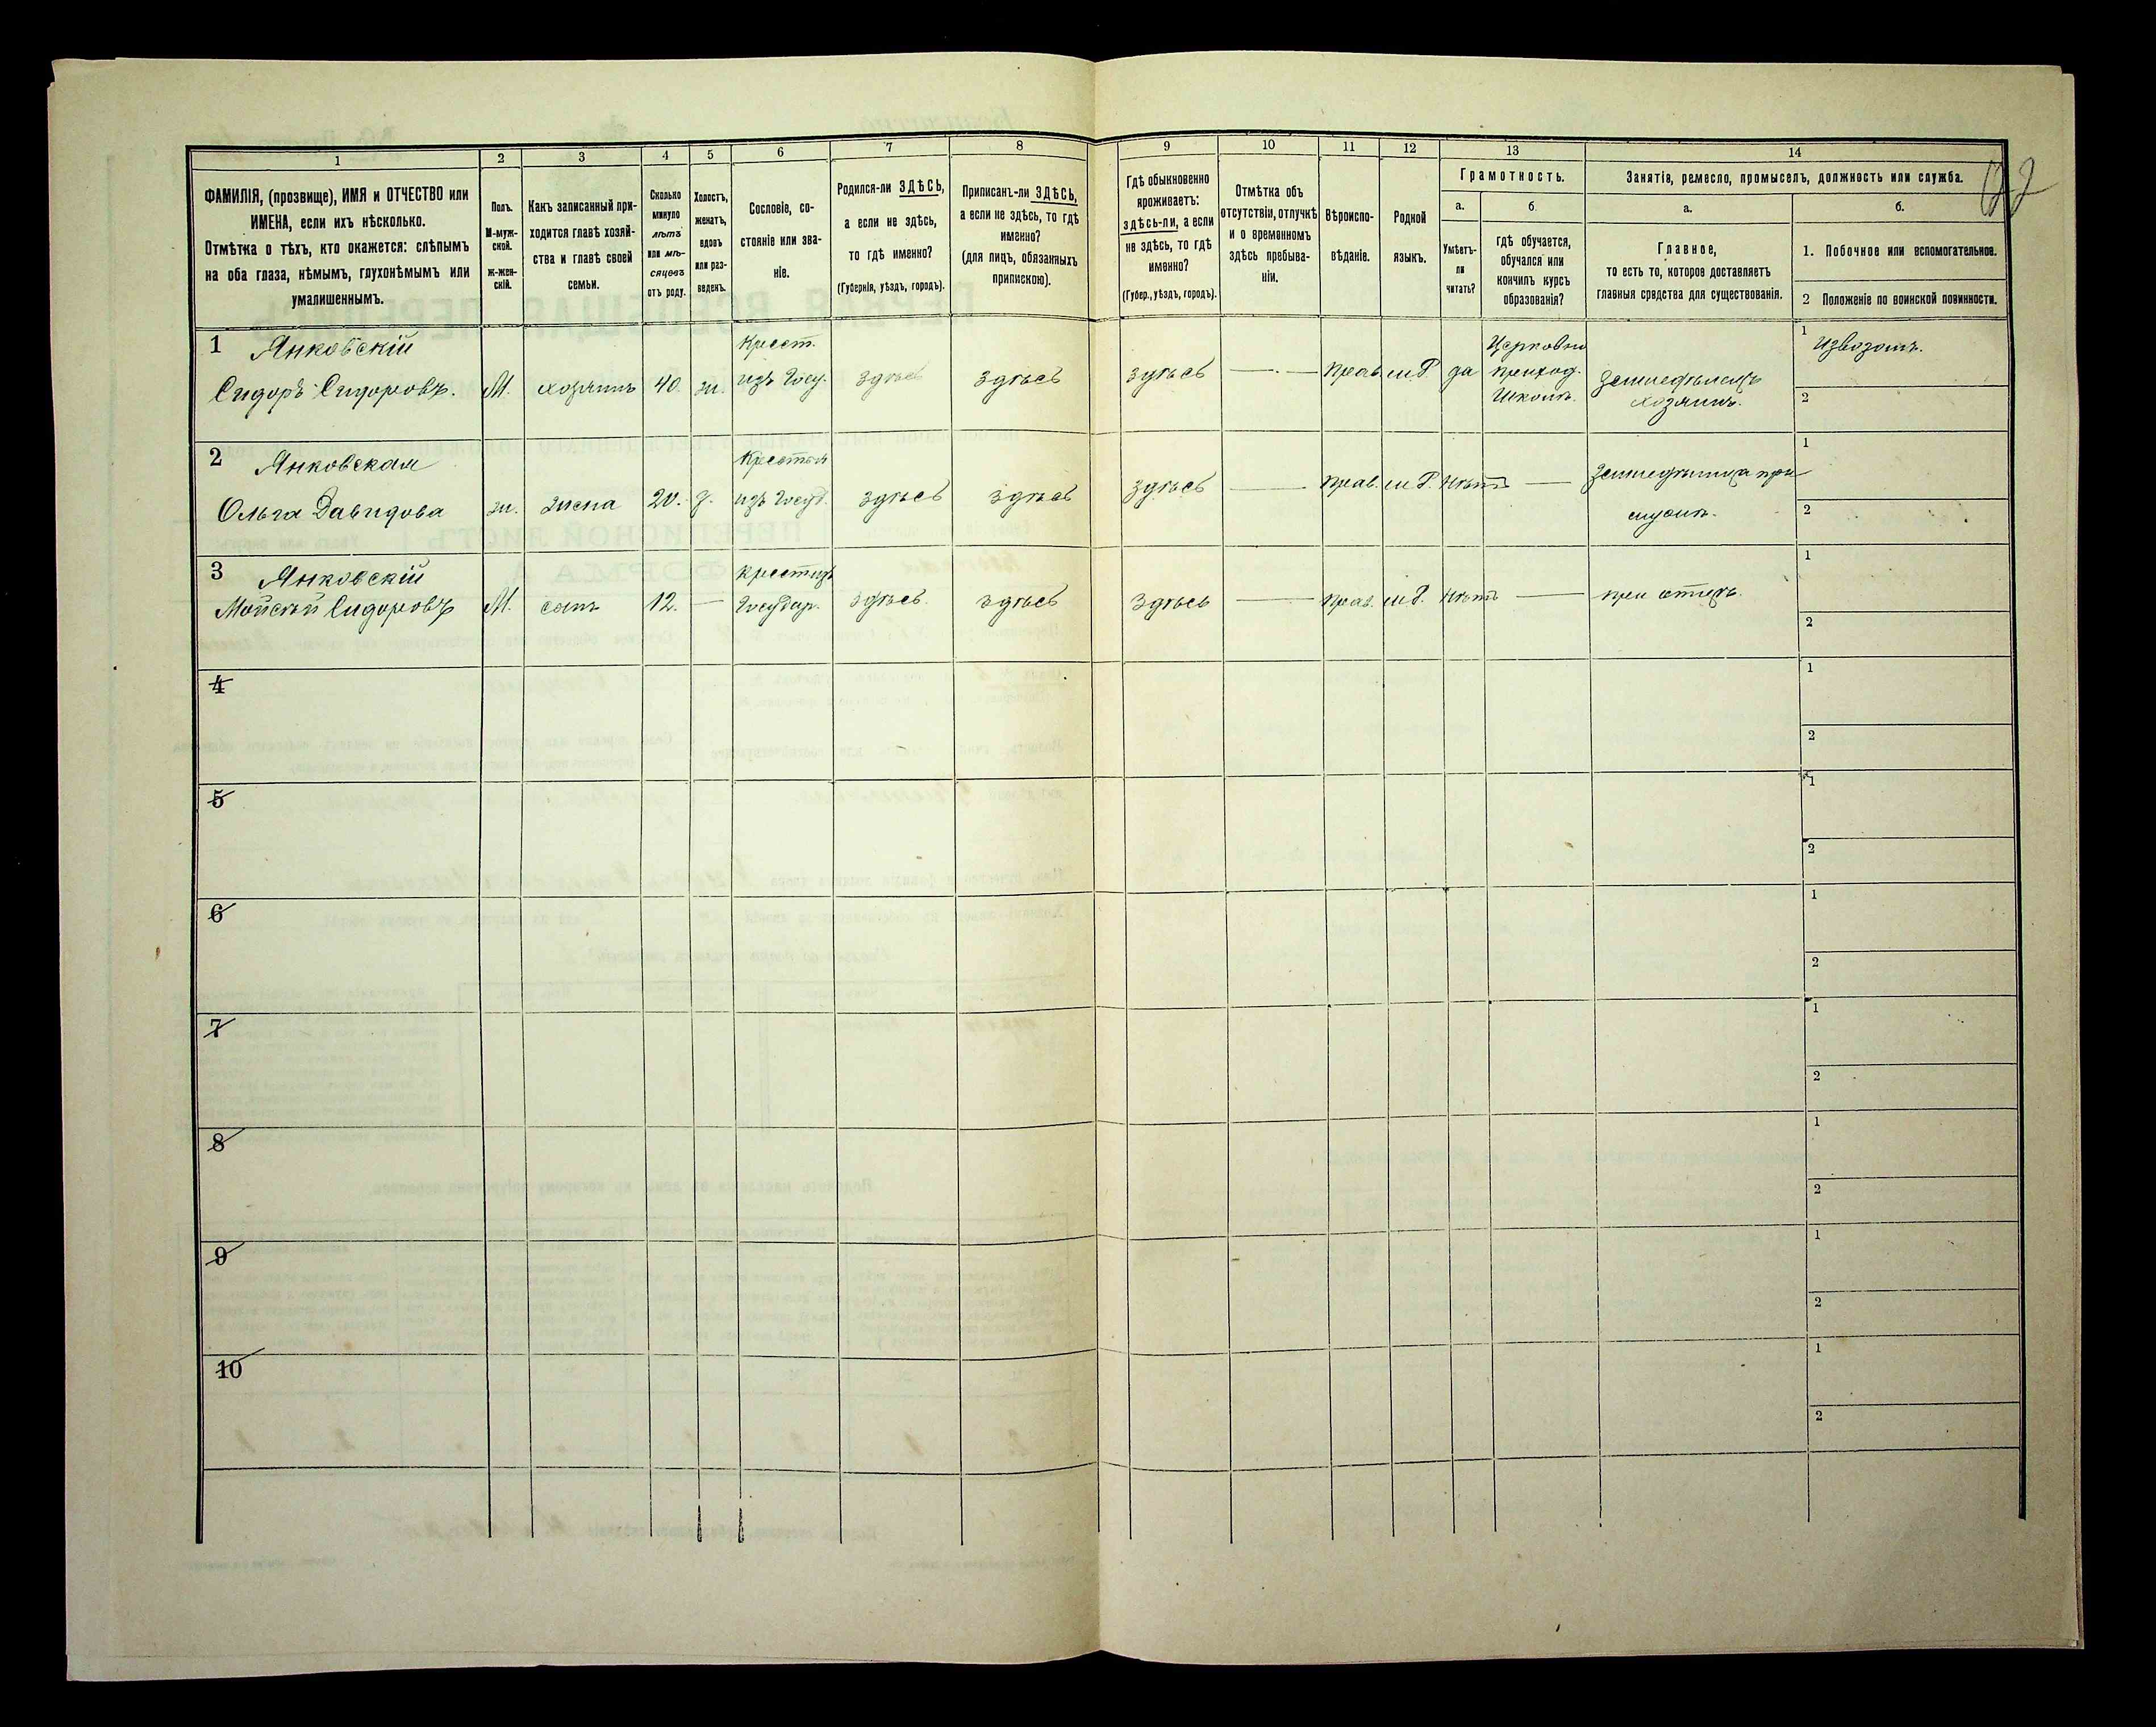 1 2 3 4 5 6 7 8 9 10 11 12 13 14
ФАМИЛІЯ, (прозвище), ИМЯ и ОТЧЕСТВО или
ИМЕНА, если ихъ нѣсколько.
Отмѣтка о тѣхъ, кто окажется: слѣпымъ
на оба глаза, нѣмымъ, глухонѣмымъ или
умалишеннымъ.
Полъ.
М-муж-
ской.
ж-жен-
скій.
Какъ записанный при-
ходится главѣ хозяй-
ства и главѣ своей
семьи.
Сколько
минуло
лѣтъ
или мѣ-
сяцевъ
отъ роду.
Холостъ,
женатъ,
вдовъ
или раз-
веденъ.
Сословіе, со-
стояніе или зва-
ніе.
Родился-ли ЗДѢСЬ,
а если не здѣсь,
то гдѣ именно?
(Губернія, уѣздъ, городъ).
Приписанъ-ли ЗДѢСЬ,
а если не здѣсь, то гдѣ
именно?
(для лицъ, обязанныхъ
припискою).
Гдѣ обыкновенно
проживаетъ:
здѣсь-ли, а если
не здѣсь, то гдѣ
именно?
(Губер., уѣздъ, городъ).
Отмѣтка объ
отсутствіи, отлучкѣ
и о временномъ
здѣсь пребыва-
ніи.
Вѣроиспо-
вѣданіе.
Родной
языкъ.
Грамотность.
а.
Умѣетъ-
ли
читать?
б.
гдѣ обучается,
обучался или
кончилъ курсъ
образованія?
Занятія, ремесло, промыселъ, должность или служба.
а.
Главное,
то есть то, которое доставляетъ
главныя средства для существованія.
б.
1. Побочное или вспомогательное.
2 Положеніе по воинской повинности.
1 Янковскій Крест. Церковно 1 Извозомъ.
Сидоръ Сидоровъ. М. хозяинъ 40. ж. изъ Госу. здѣсь здѣсь здѣсь — — прав. м.Р. да приход. Земледѣлецъ
Школѣ. хозяинъ. 2
2 Янковская Крестьян 1
Ольга Давидова ж. жена 20. з. изъ Госуд. здѣсь здѣсь здѣсь — прав. м.Р. нѣтъ — Земледѣлица при
мужѣ. 2
3 Янковскій крест изъ 1
Мойсѣй Сидоровъ М. сынъ 12. — Государ. здѣсь. здѣсь здѣсь — прав. м.Р. нѣтъ — при отцѣ.
2
4 1
2
5 1
2
6 1
2
7 1
2
8 1
2
9 1
2
10 1
2